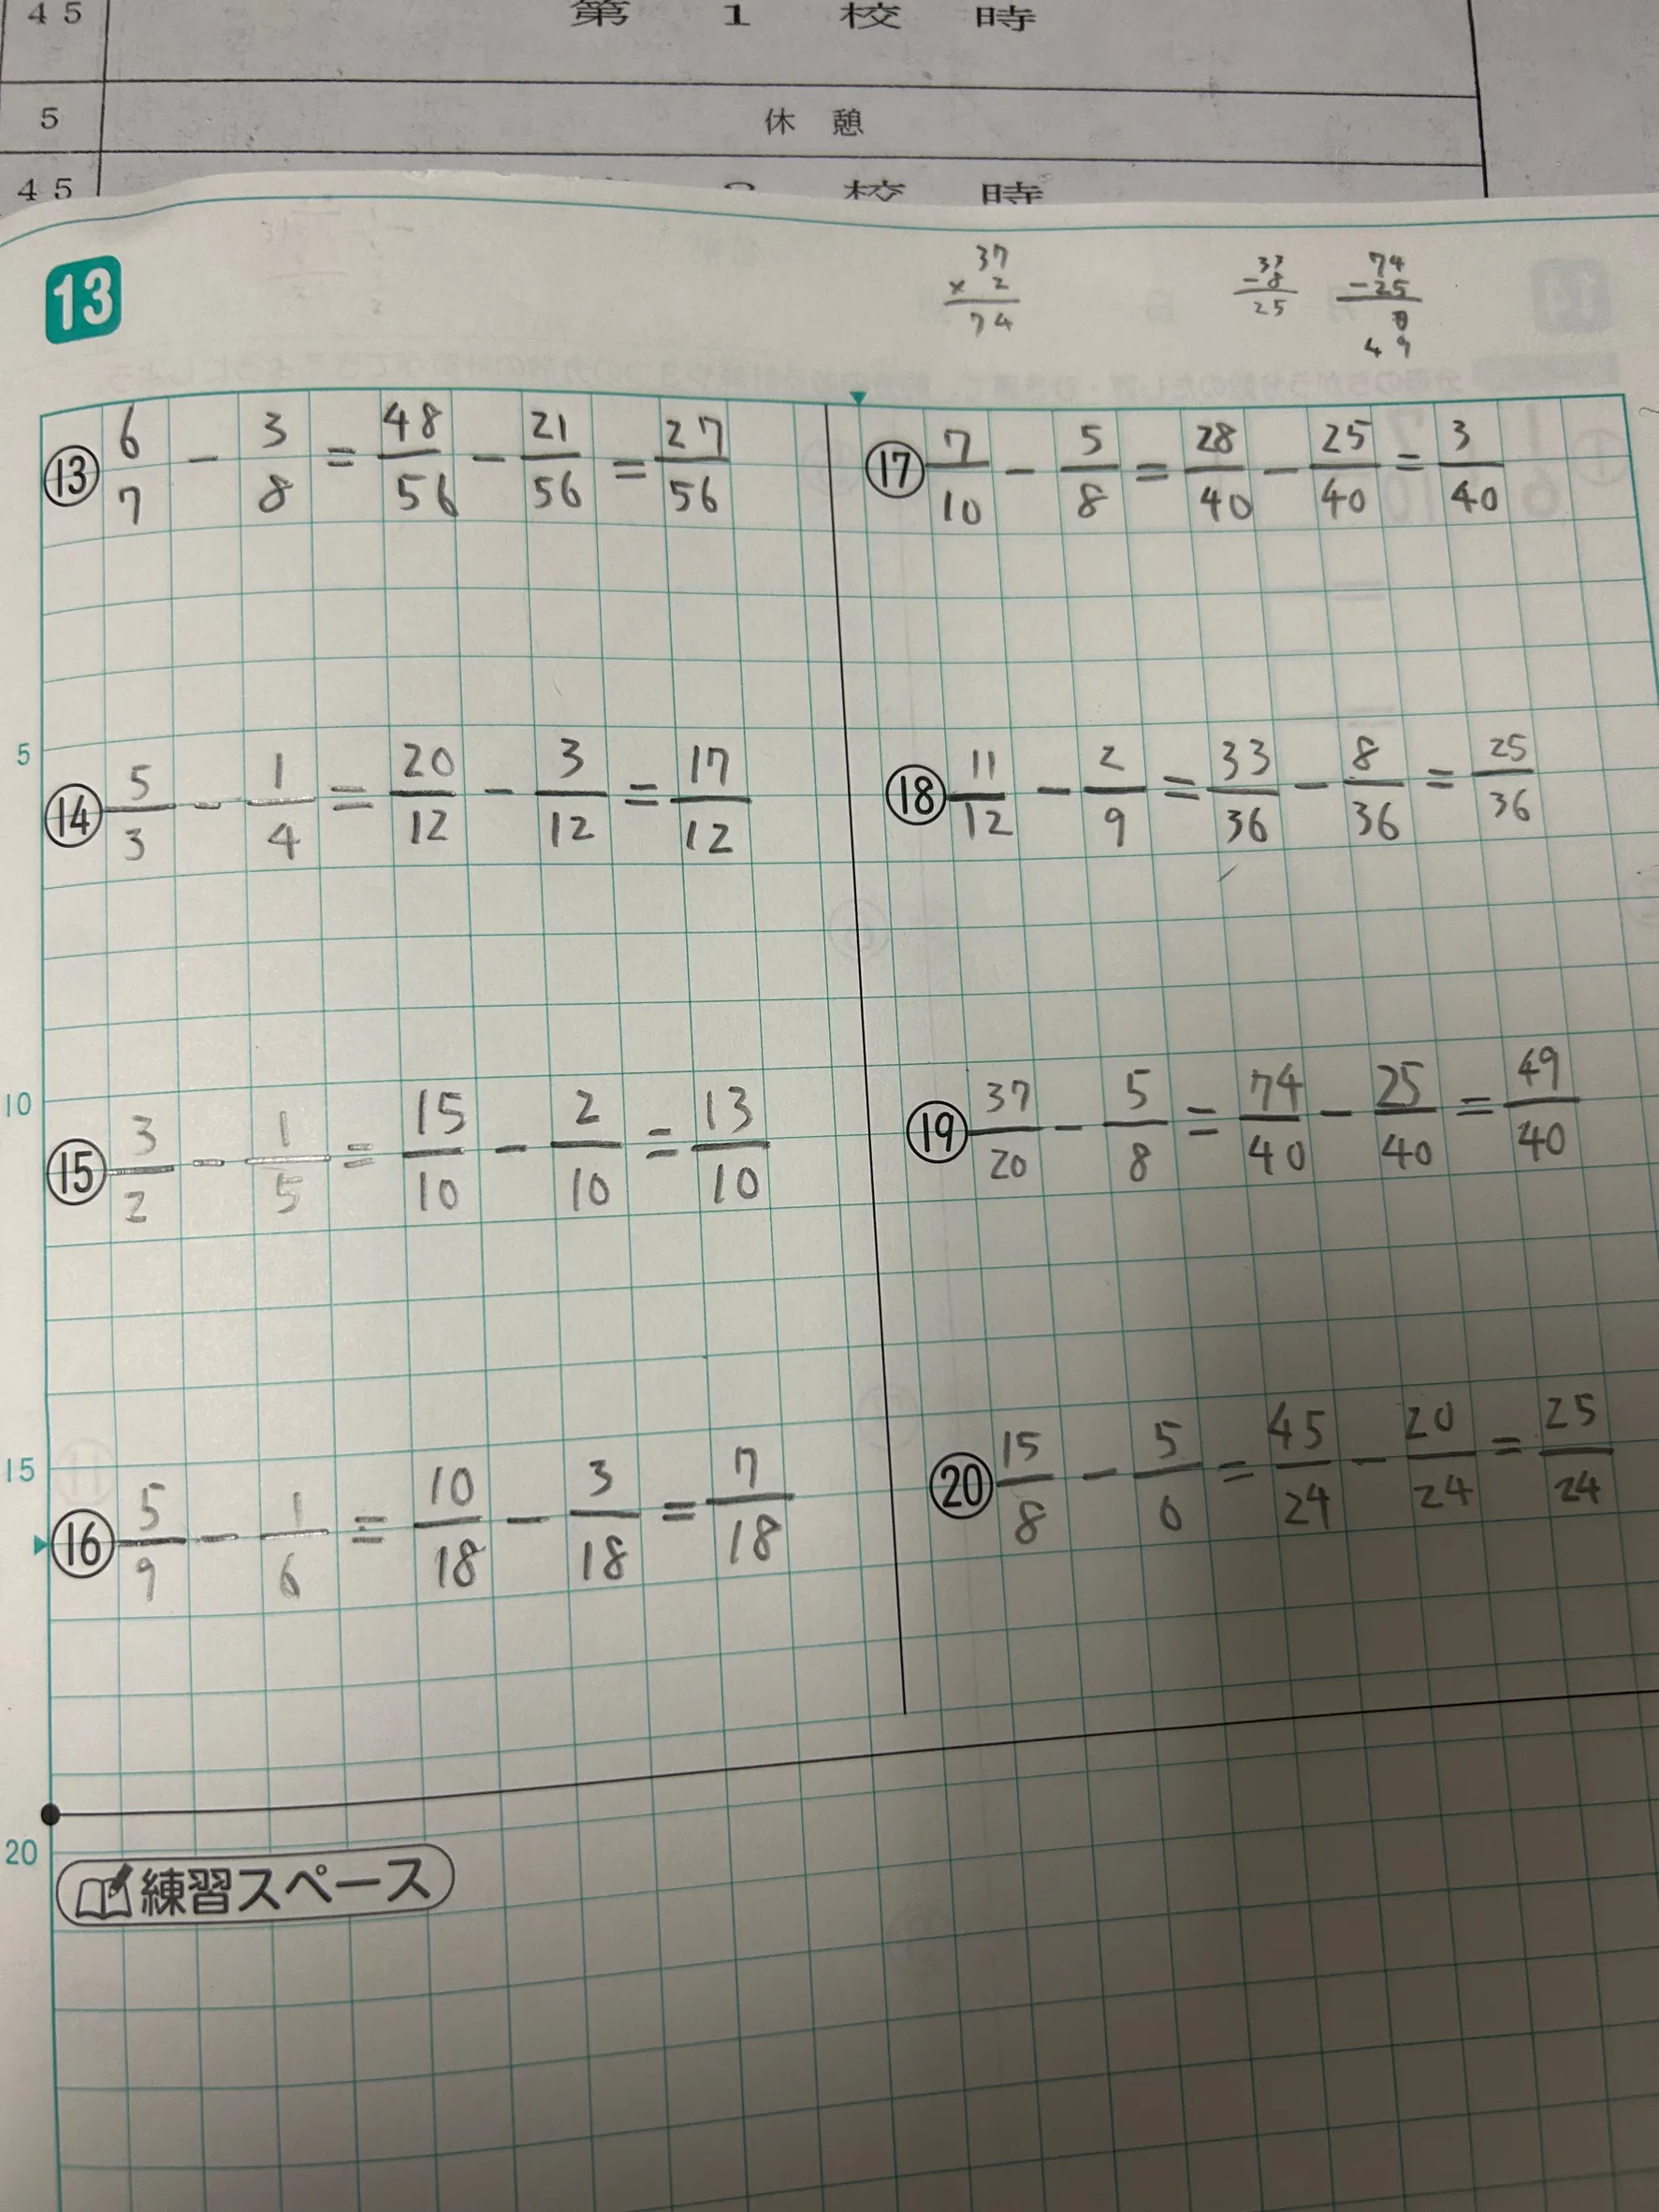 45 第1校時
5 休憩
45 校時
13
37
× 2
74
33
-8
25
74
-25
49
⑬ 6/7 - 3/8 = 48/56 - 21/56 = 27/56
⑭ 5/3 - 1/4 = 20/12 - 3/12 = 17/12
⑮ 3/2 - 1/5 = 15/10 - 2/10 = 13/10
⑯ 5/9 - 1/6 = 10/18 - 3/18 = 7/18
⑰ 7/10 - 5/8 = 28/40 - 25/40 = 3/40
⑱ 11/12 - 2/9 = 33/36 - 8/36 = 25/36
⑲ 37/20 - 5/8 = 74/40 - 25/40 = 49/40
⑳ 15/8 - 5/6 = 45/24 - 20/24 = 25/24
5
10
15
20
練習スペース